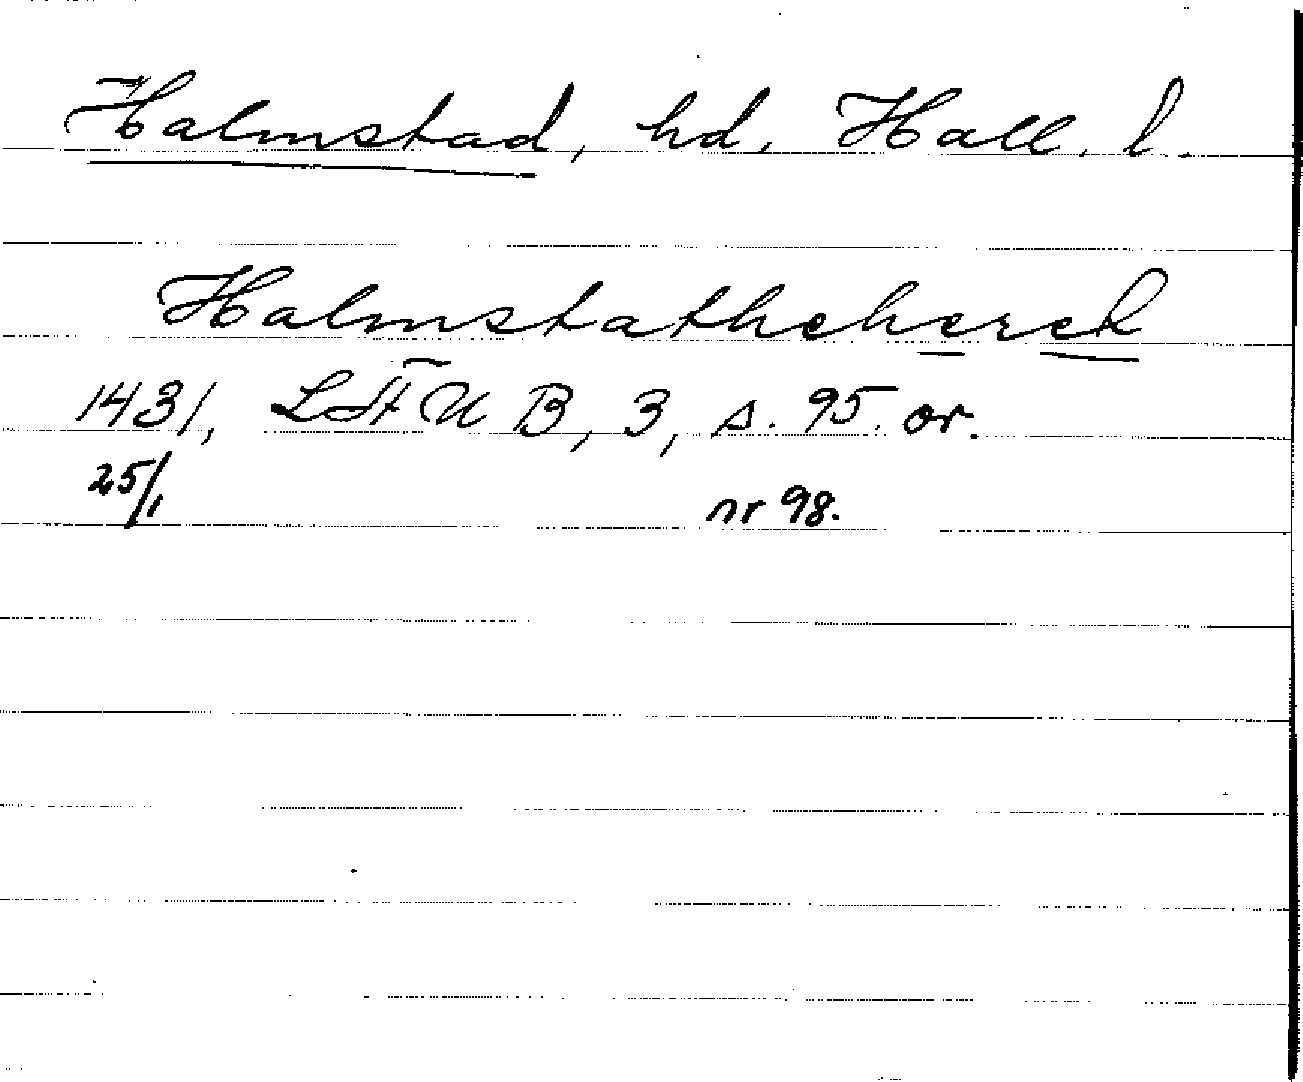 Halmstad, hd. Hall. l.
Halmstathehereh
1431, LÄU B, 3, s. 95. or.
25/1 nr 98.